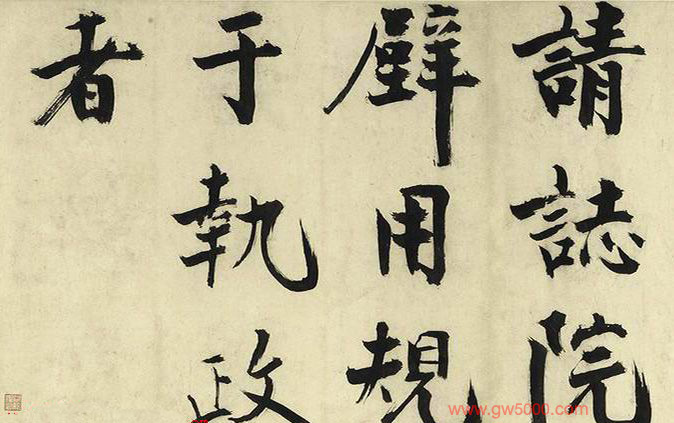 請誌院
壁用規
于執政
者
www.gw5000.com